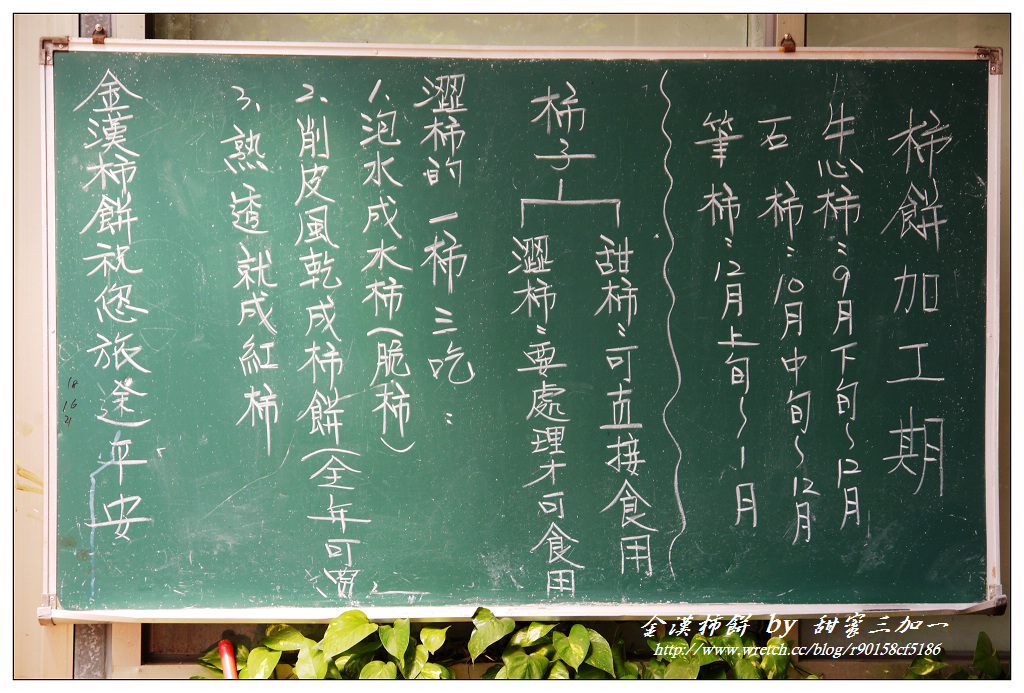 柿餅加工期
牛心柿:9月下旬~12月
石柿:10月中旬~12月
筆柿:12月上旬~1月
柿子
甜柿:可直接食用
澀柿:要處理才可食用
澀柿的一柿三吃:
1、泡水成水柿(脆柿)
2、削皮風乾成柿餅(全年可買)
3、熟透就成紅柿
金漢柿餅祝您旅途平安
18
16
21
金漢柿餅 by 甜蜜三加一
http://www.wretch.cc/blog/r90158cf5186